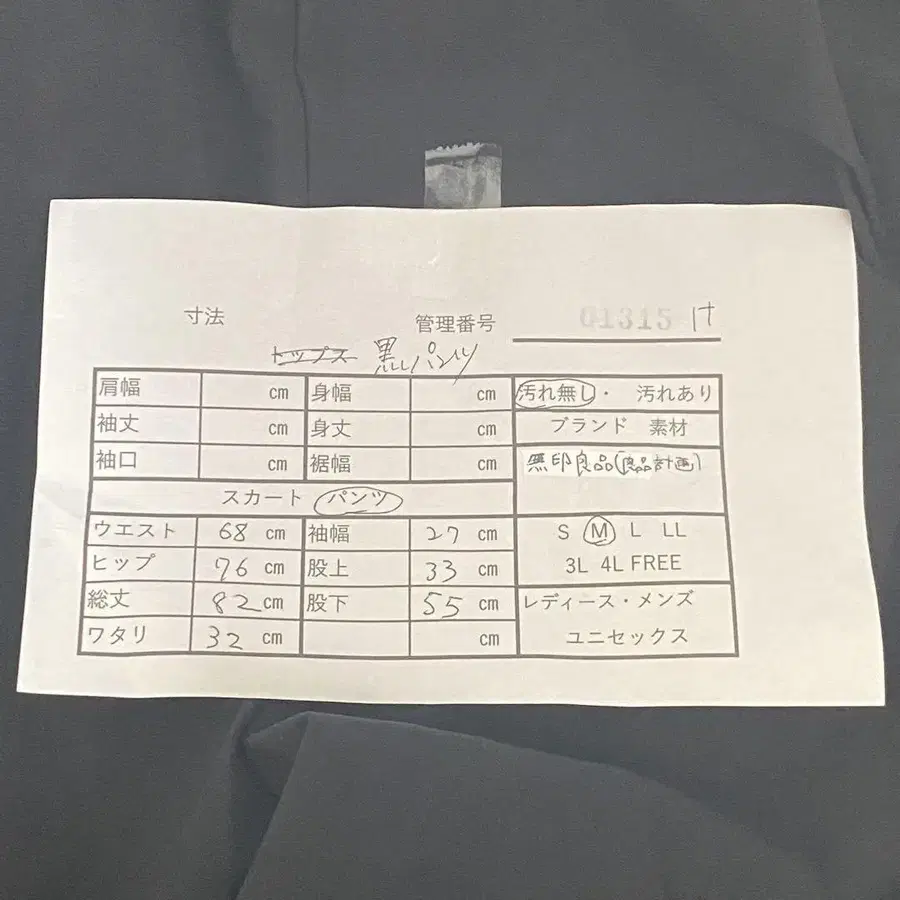 寸法 管理番号 01315 け
トップス 黒パンツ
肩幅 cm 身幅 cm 汚れ無し・ 汚れあり
袖丈 cm 身丈 cm ブランド 素材
袖口 cm 裾幅 cm 無印良品(良品計画)
スカート パンツ
ウエスト 68 cm 袖幅 27 cm S M L LL
ヒップ 76 cm 股上 33 cm 3L 4L FREE
総丈 82 cm 股下 55 cm レディース・メンズ
ワタリ 32 cm cm ユニセックス